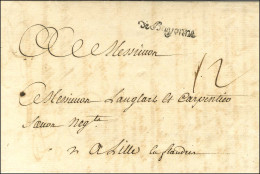 de Bayonne
Messieurs
12
Messieurs Langlart et Carpentier
Negts
a Lille en flandres